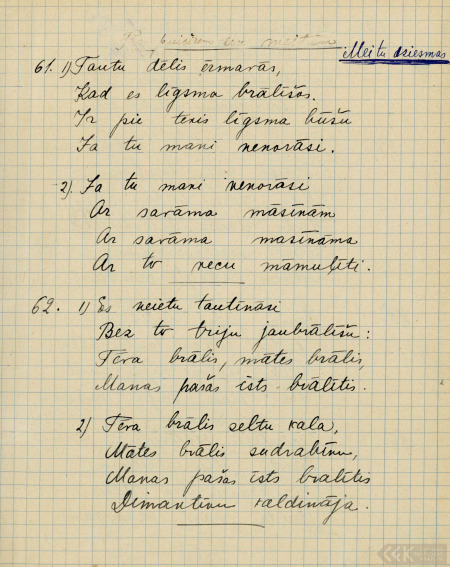 Meitu dziesmas
61. 1) Tautu dēlis ērmavās,
Kad es līgsma brālīšos.
Ir pie tevis līgsma būšu
Ja tu mani nenorāsi.
2). Ja tu mani nenorāsi
Ar savāma māsiņām
Ar savāma masiņāma
Ar to vecu māmuļīti.
62. 1) Es neietu tautiņāsi
Bez to triju jaubrālīšu:
Tēva brālis, mātes brālis,
Manas pašas īsts brālītis.
2) Tēva brālis seltu kala,
Mātes brālis sudrabiņu,
Manas pašas īsts bralītis
Dimantiņu kaldināja.